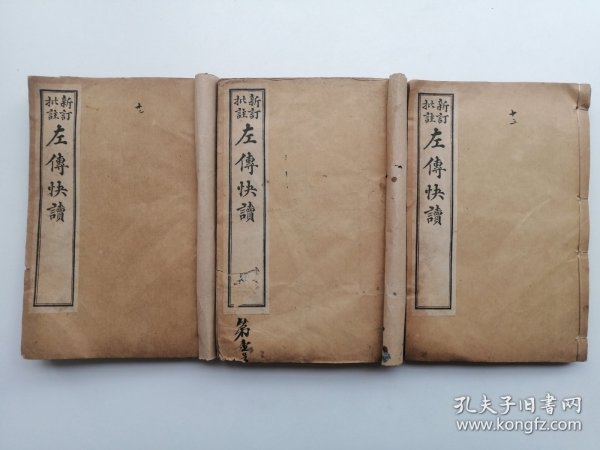 新訂
批註
左傳快讀
十
新訂
批註
左傳快讀
第壹
新訂
批註
左傳快讀
十二
孔夫子旧书网
www.kongfz.com